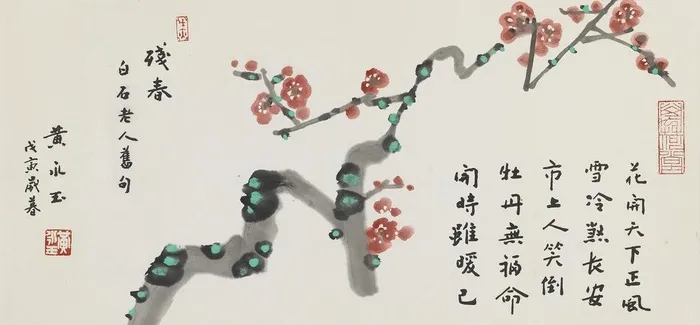 花開天下正風
雪冷熱長安
市上人笑倒
牡丹無福命
開時雖暖已
殘春
白石老人舊句
黃永玉
戊寅歲暮
黃永玉